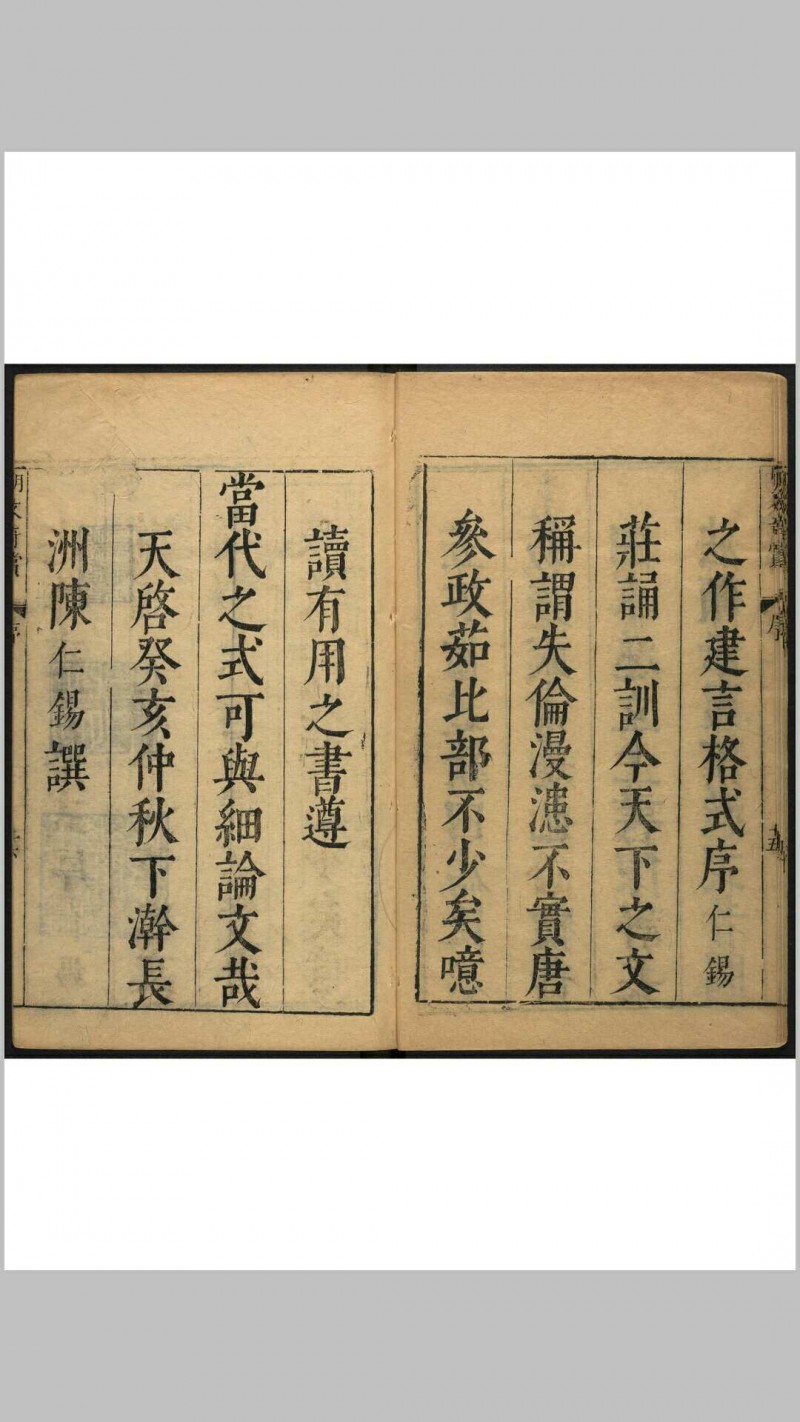 之作建言格式序仁錫
莊誦二訓今天下之文
稱謂失倫漫漶不實唐
參政茹比部不少矣噫
讀有用之書遵
當代之式可與細論文哉
天啓癸亥仲秋下澣長
洲陳仁錫譔
序
五